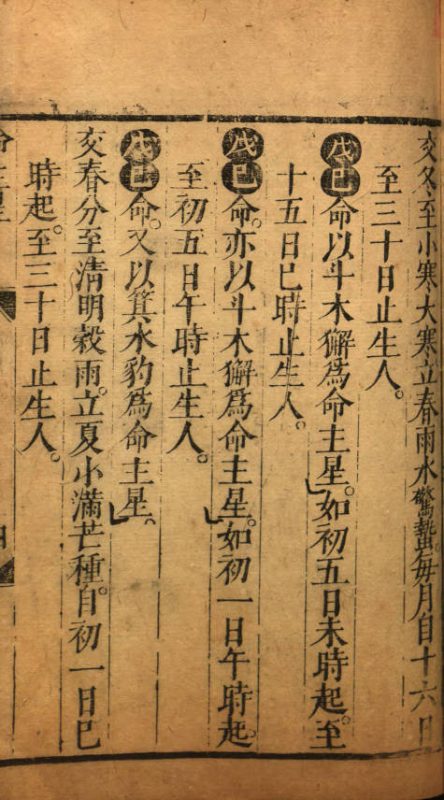 交冬至小寒大寒立春雨水驚蟄每月自十六日
至三十日止生人。
戊己命以斗木獬爲命主星。如初五日未時起。至
十五日巳時止生人。
戊己命。亦以斗木獬爲命主星。如初一日午時起。
至初五日午時止生人。
戊己命。又以箕水豹爲命主星。
交春分至清明穀雨。立夏小滿芒種。自初一日巳
時起。至三十日止生人。